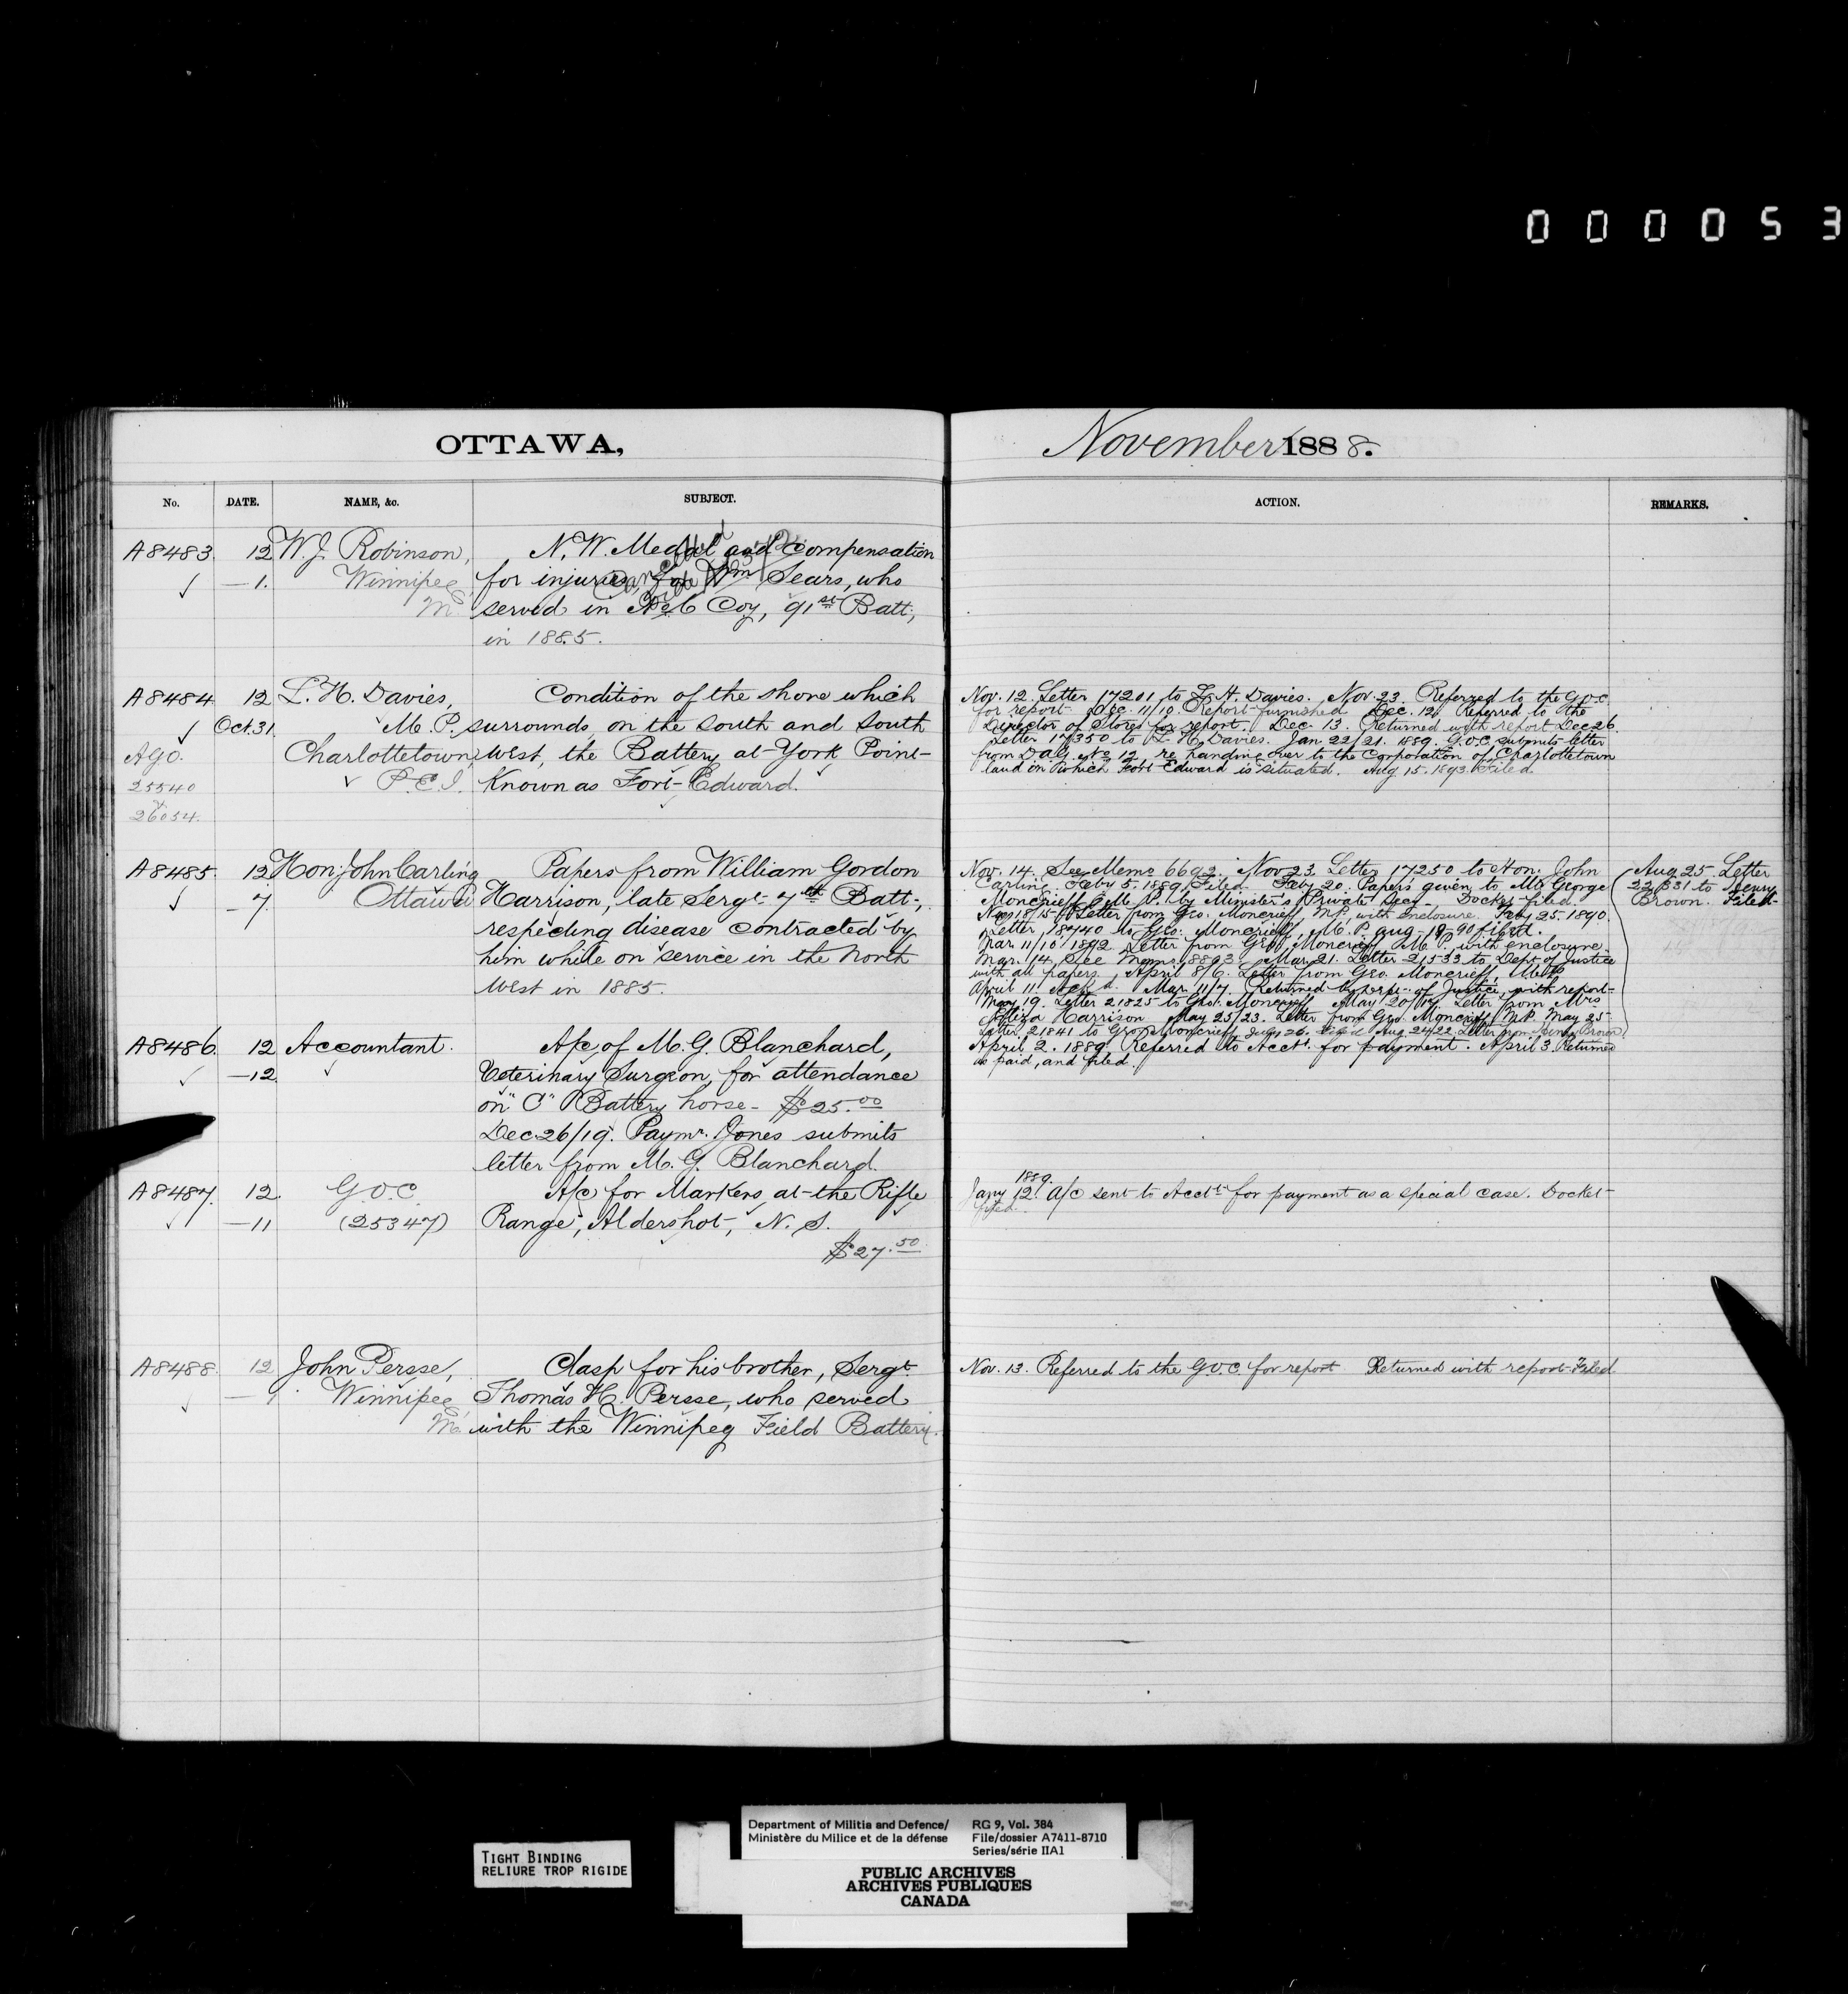 000053
OTTAWA,
November 1888.
No. DATE. NAME, &c. SUBJECT. ACTION. REMARKS.
A8483. 12 W. J. Robinson, N. W. Medal and Compensation
✓ —1. Winnipeg for injuries, for Wm Sears, who
M. served in No 6 Coy, 91st Batt,
in 1885.
Cancelled
A8484 12 L. H. Davies, Condition of the shore which
✓ Oct. 31. M. P. surrounds, on the South and South
AGO. Charlottetown, West, the Battery at York Point
25540 P. E. I. Known as Fort Edward.
&
26054.
Nov. 12. Letter 17201 to L. H. Davies. Nov. 23. Referred to the G.O.C.
for report. Dec. 11/10 Report furnished Dec. 12. Referred to the
Director of Stores for report. Dec. 13. Returned with report Dec 26
Letter 17350 to L. H. Davies. Jan. 22/21. 1889. G.O.C. submits letter
from D.A.G. No 12 re handing over to the Corporation of Charlottetown
land on which Fort Edward is situated. Aug. 15. 1893. Filed
A8485. 12 Hon. John Carling Papers from William Gordon
✓ —7. Ottawa Harrison, late Sergt 7th Batt,
respecting disease contracted by
him while on service in the North
West in 1885.
Nov. 14. See Memo 6692. Nov 23. Letter 17250 to Hon. John
Carling. Feby 5. 1889. Filed. Feby 20. Papers given to Mr George
Moncrieff, M. P. by Minister's Private Secy. Docket filed.
18/15 Letter from Geo. Moncrieff, M.P. with enclosure. Feby 25. 1890.
Letter 18740 to Geo. Moncrieff, M. P. Aug. 19-90 filed.
Mar. 11/10 1892. Letter from Geo. Moncrieff M. P. with enclosure.
Mar. 14. See Memo 8893. Mar. 21. Letter 21533 to Dept of Justice
with all papers. April 8/6. Letter from Geo. Moncrieff, M.P.
April 11. Ack'd. May 11/7. Returned by Dept. of Justice, with report.
May 19. Letter 21825 to Geo. Moncrieff May 20/19. Letter from Mrs
Eliza Harrison May 25/23. Letter from Geo. Moncrieff M.P. May 25
Letter 21841 to Geo. Moncrieff July 26. Filed Aug. 24/22. Letter from Henry Brown
Aug 25. Letter
22331 to Henry
Brown. Filed
A8486. 12 Accountant. A/c of M. G. Blanchard,
✓ —12. Veterinary Surgeon, for attendance
on "C" Battery horse - $25.00
Dec. 26/19. Paymr. Jones submits
letter from M. G. Blanchard.
April 2. 1889. Referred to Acctt. for payment. April 3. Returned
as paid, and filed.
A8487. 12. G.O.C. A/c for Markers at the Rifle
✓ —11 (25347) Range, Aldershot, N. S.
$27.50
1889.
Jany 12. A/c sent to Acctt for payment as a special case. Docket
filed.
A8488. 12 John Persse, Clasp for his brother, Sergt
✓ Winnipeg Thomas H. Persse, who served
M. with the Winnipeg Field Battery.
Nov. 13. Referred to the G.O.C. for report Returned with report Filed
TIGHT BINDING
RELIURE TROP RIGIDE
Department of Militia and Defence/ RG 9, Vol. 384
Ministère du Milice et de la défense File/dossier A7411-8710
Series/série IIA1
PUBLIC ARCHIVES
ARCHIVES PUBLIQUES
CANADA